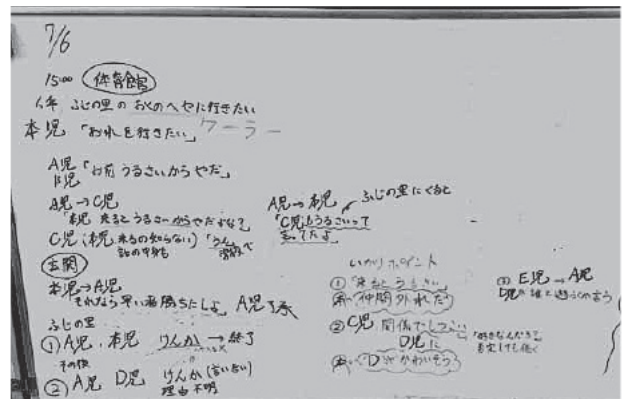 7/6
15:00 体育館
ふじの里の おくのへやに行きたい
本児「おれも行きたい」クーラー
A児「お前 うるさいからやだ」
B児
A児→C児
「本児 来るとうるさーからやだよな?」
C児(本児 来るの知らない)「うん」
話の中身も
A児→本児 ふじの里にくると
「C児もうるさいって
言ってたよ」
玄関
本児→A児
それなら早い者勝ちにしよ A児了承
ふじの里
① A児、本児 けんか→終了
その後
② A児 D児 けんか(言い合い)
理由不明
いかりポイント
①「来るとうるさい」
仲間外れだ
② C児 関係でしつこい
D児に
「好きなんだろ?」
否定しても続く
Dがかわいそう
③ E児→A児
D児が誰と遊ぶの言う